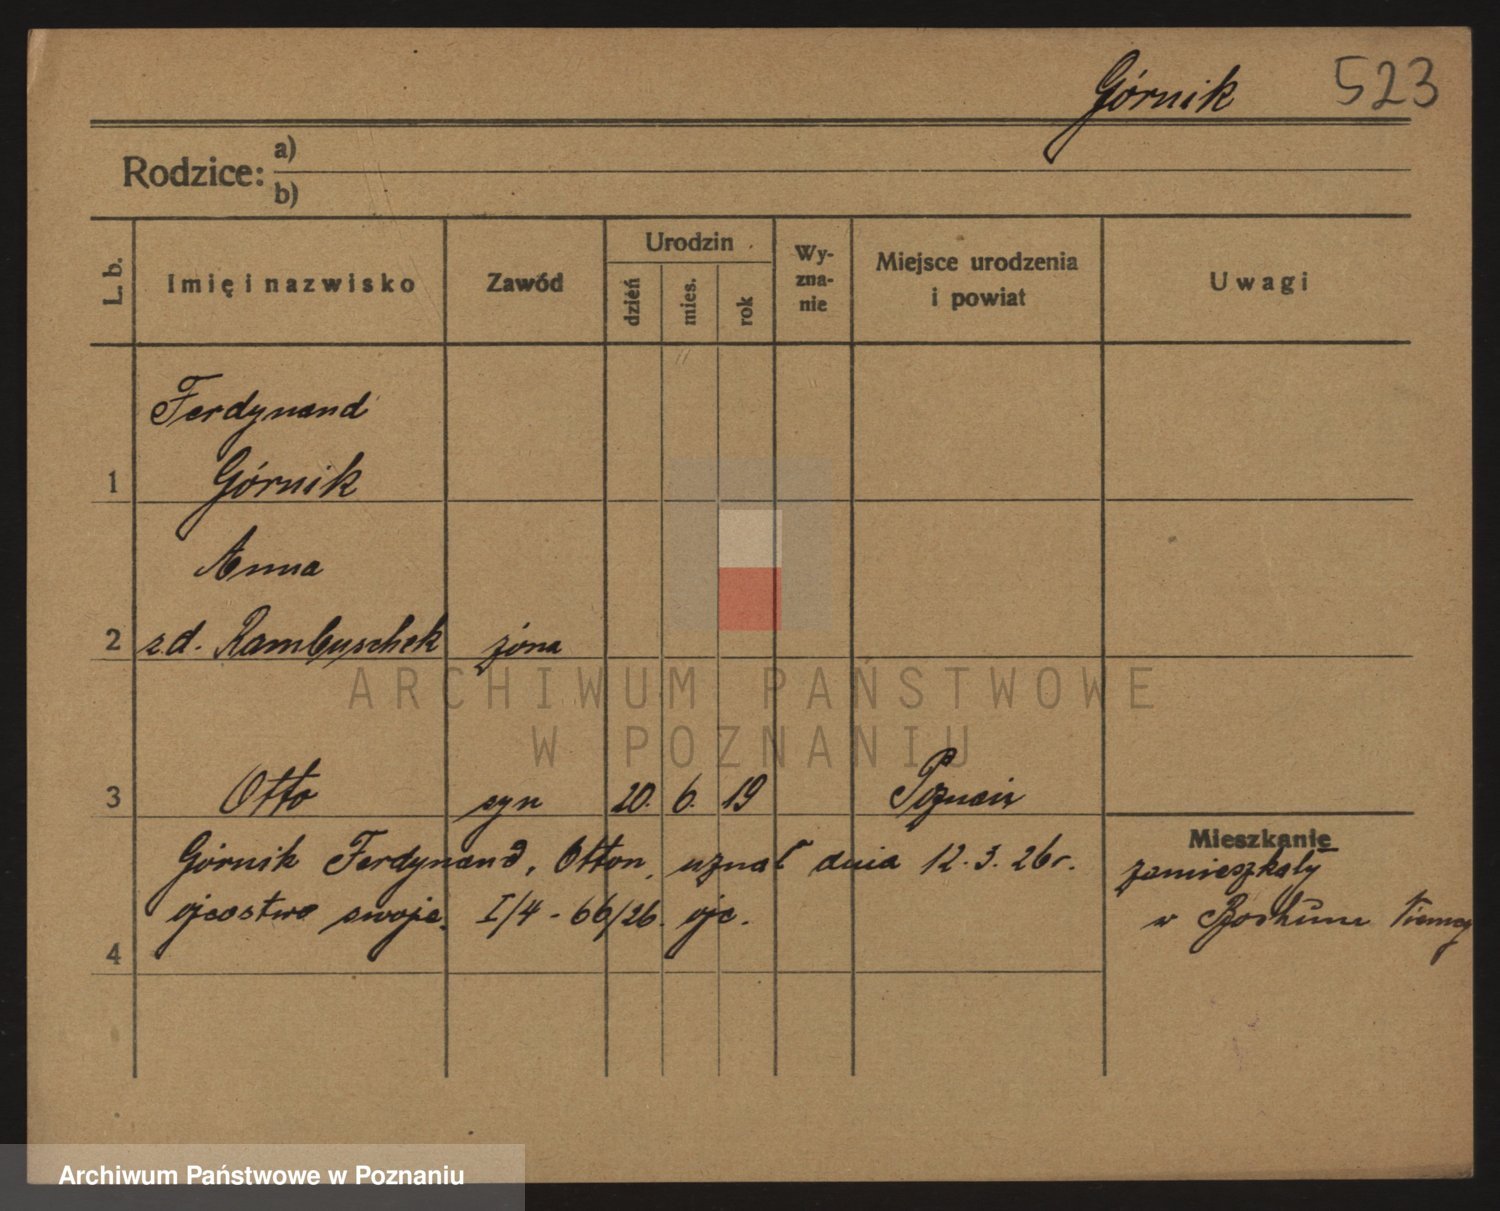 Górnik 523
Rodzice: a)
b)
L. b. Imię i nazwisko Zawód Urodzin dzień mies. rok Wy-zna-nie Miejsce urodzenia i powiat Uwagi
Ferdynand
1 Górnik
Anna
2 z.d. Rambuschek żona
ARCHIWUM PAŃSTWOWE
W POZNANIU
3 Otto syn 20. 6. 19 Poznań
Mieszkanie
Górnik Ferdynand, Otton, uznał dnia 12.3.26r. zamieszkały
ojcostwo swoje. I/4 - 66/26. ojc. w Bochum Niemcy
4
Archiwum Państwowe w Poznaniu